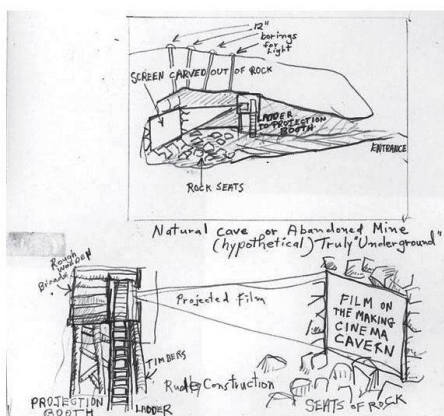 12"
borings
for
Light
SCREEN CARVED OUT OF ROCK
LADDER
TO PROJECTION
BOOTH
ENTRANCE
ROCK SEATS
Natural cave or Abandoned Mine
(hypothetical) Truly "Underground"
Rough
wooden
Projected Film
FILM ON
THE MAKING
CINEMA
CAVERN
TIMBERS
Construction
PROJECTION
BOOTH
LADDER
SEATS OF ROCK